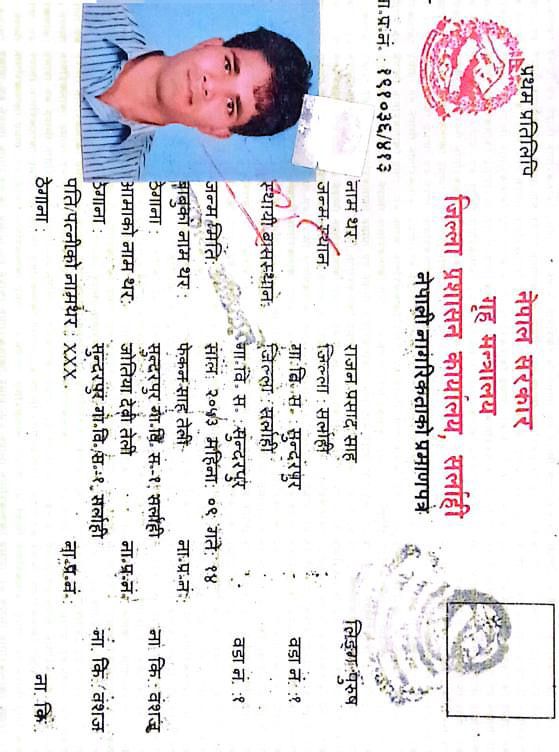 प्रथम प्रतिलिपि
नेपाल सरकार
गृह मन्त्रालय
जिल्ला प्रशासन कार्यालय, सर्लाही
नेपाली नागरिकताको प्रमाणपत्र
ना.प्र.नं. : १९१०३६/४१३
लिङ्गः पुरुष
नाम थरः राजन प्रसाद साह
जन्म स्थानः जिल्ला : सर्लाही
गा.वि.स.: सुन्दरपुर वडा नं. :१
स्थायी बासस्थानः जिल्लाः सर्लाही
गा.वि.स.: सुन्दरपुर वडा नं. :१
जन्म मितिः सालः २०५३ महिनाः ०९ गतेः १४
बाबुको नाम थर : साह तेली ना.प्र.नं. ना. कि.: वंशज
ठेगाना : सुन्दरपुर गा.वि.स.-१ सर्लाही
आमाको नाम थरः देवी तेली ना.प्र.नं. ना. कि. वंशज
ठेगाना : सुन्दरपुर गा.वि.स.-१, सर्लाही
पति/पत्नीको नामथर : XXX. ना.प्र.नं : ना. कि.
ठेगाना :